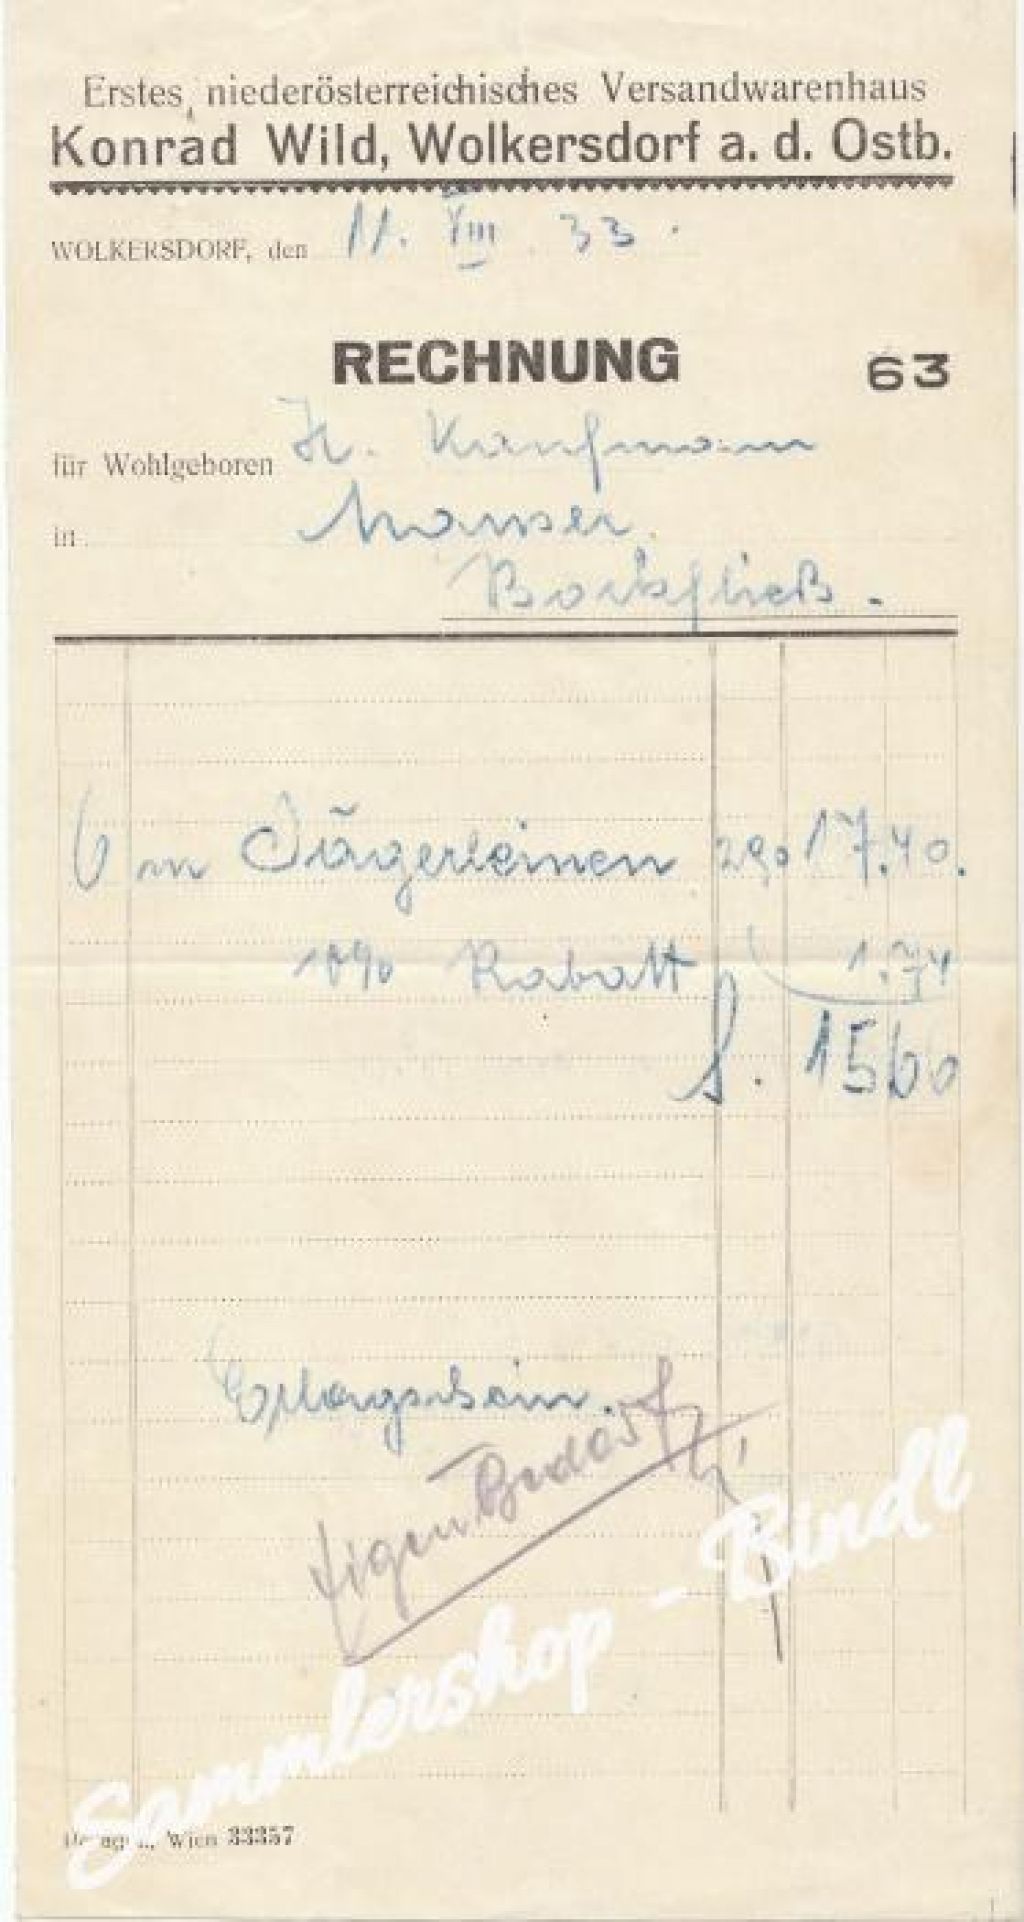 Erstes niederösterreichisches Versandwarenhaus
Konrad Wild, Wolkersdorf a. d. Ostb.
WOLKERSDORF, den 11. VIII. 33.
RECHNUNG 63
für Wohlgeboren H. Kaufmann
in
Bockfließ.
6 m Jägerleinen 290 17.40.
10% Rabatt 1.74
S. 1560
Erlagschein.
Eigen Bedarf
Sammlershop - Bindl
Wien 33357